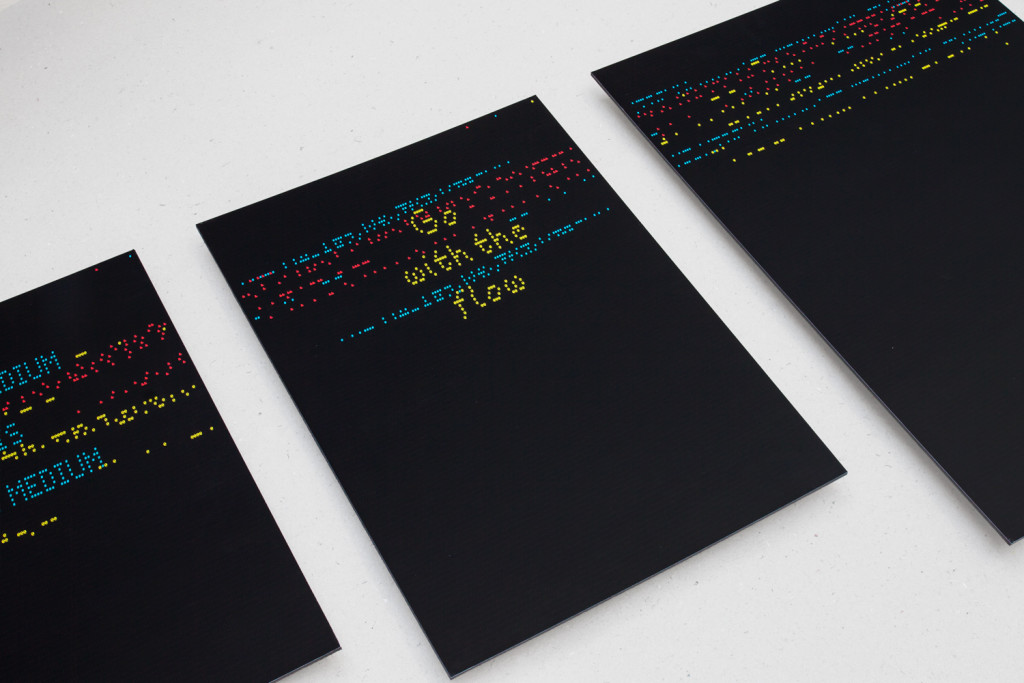 DIUM
IS
MEDIUM
Go
with the
flow